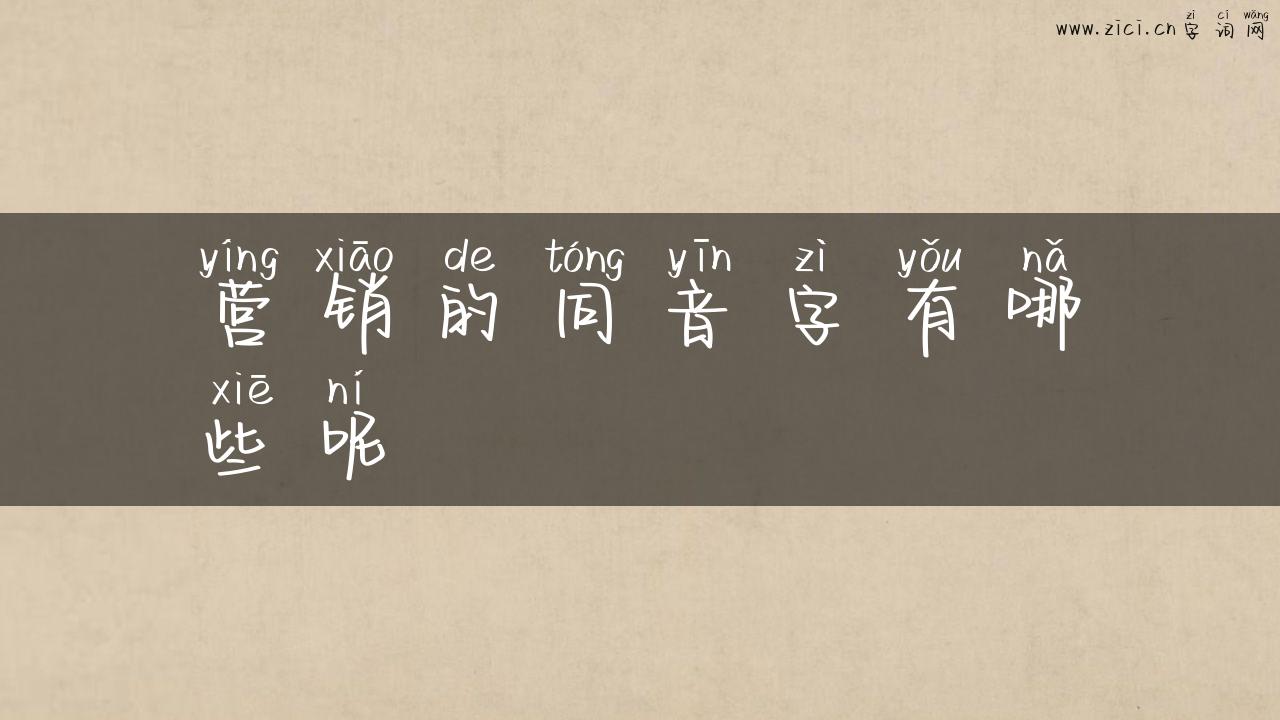 zì cí wǎng
www.zici.cn 字 词 网
yíng xiāo de tóng yīn zì yǒu nǎ
营 销 的 同 音 字 有 哪
xiē ní
些 呢